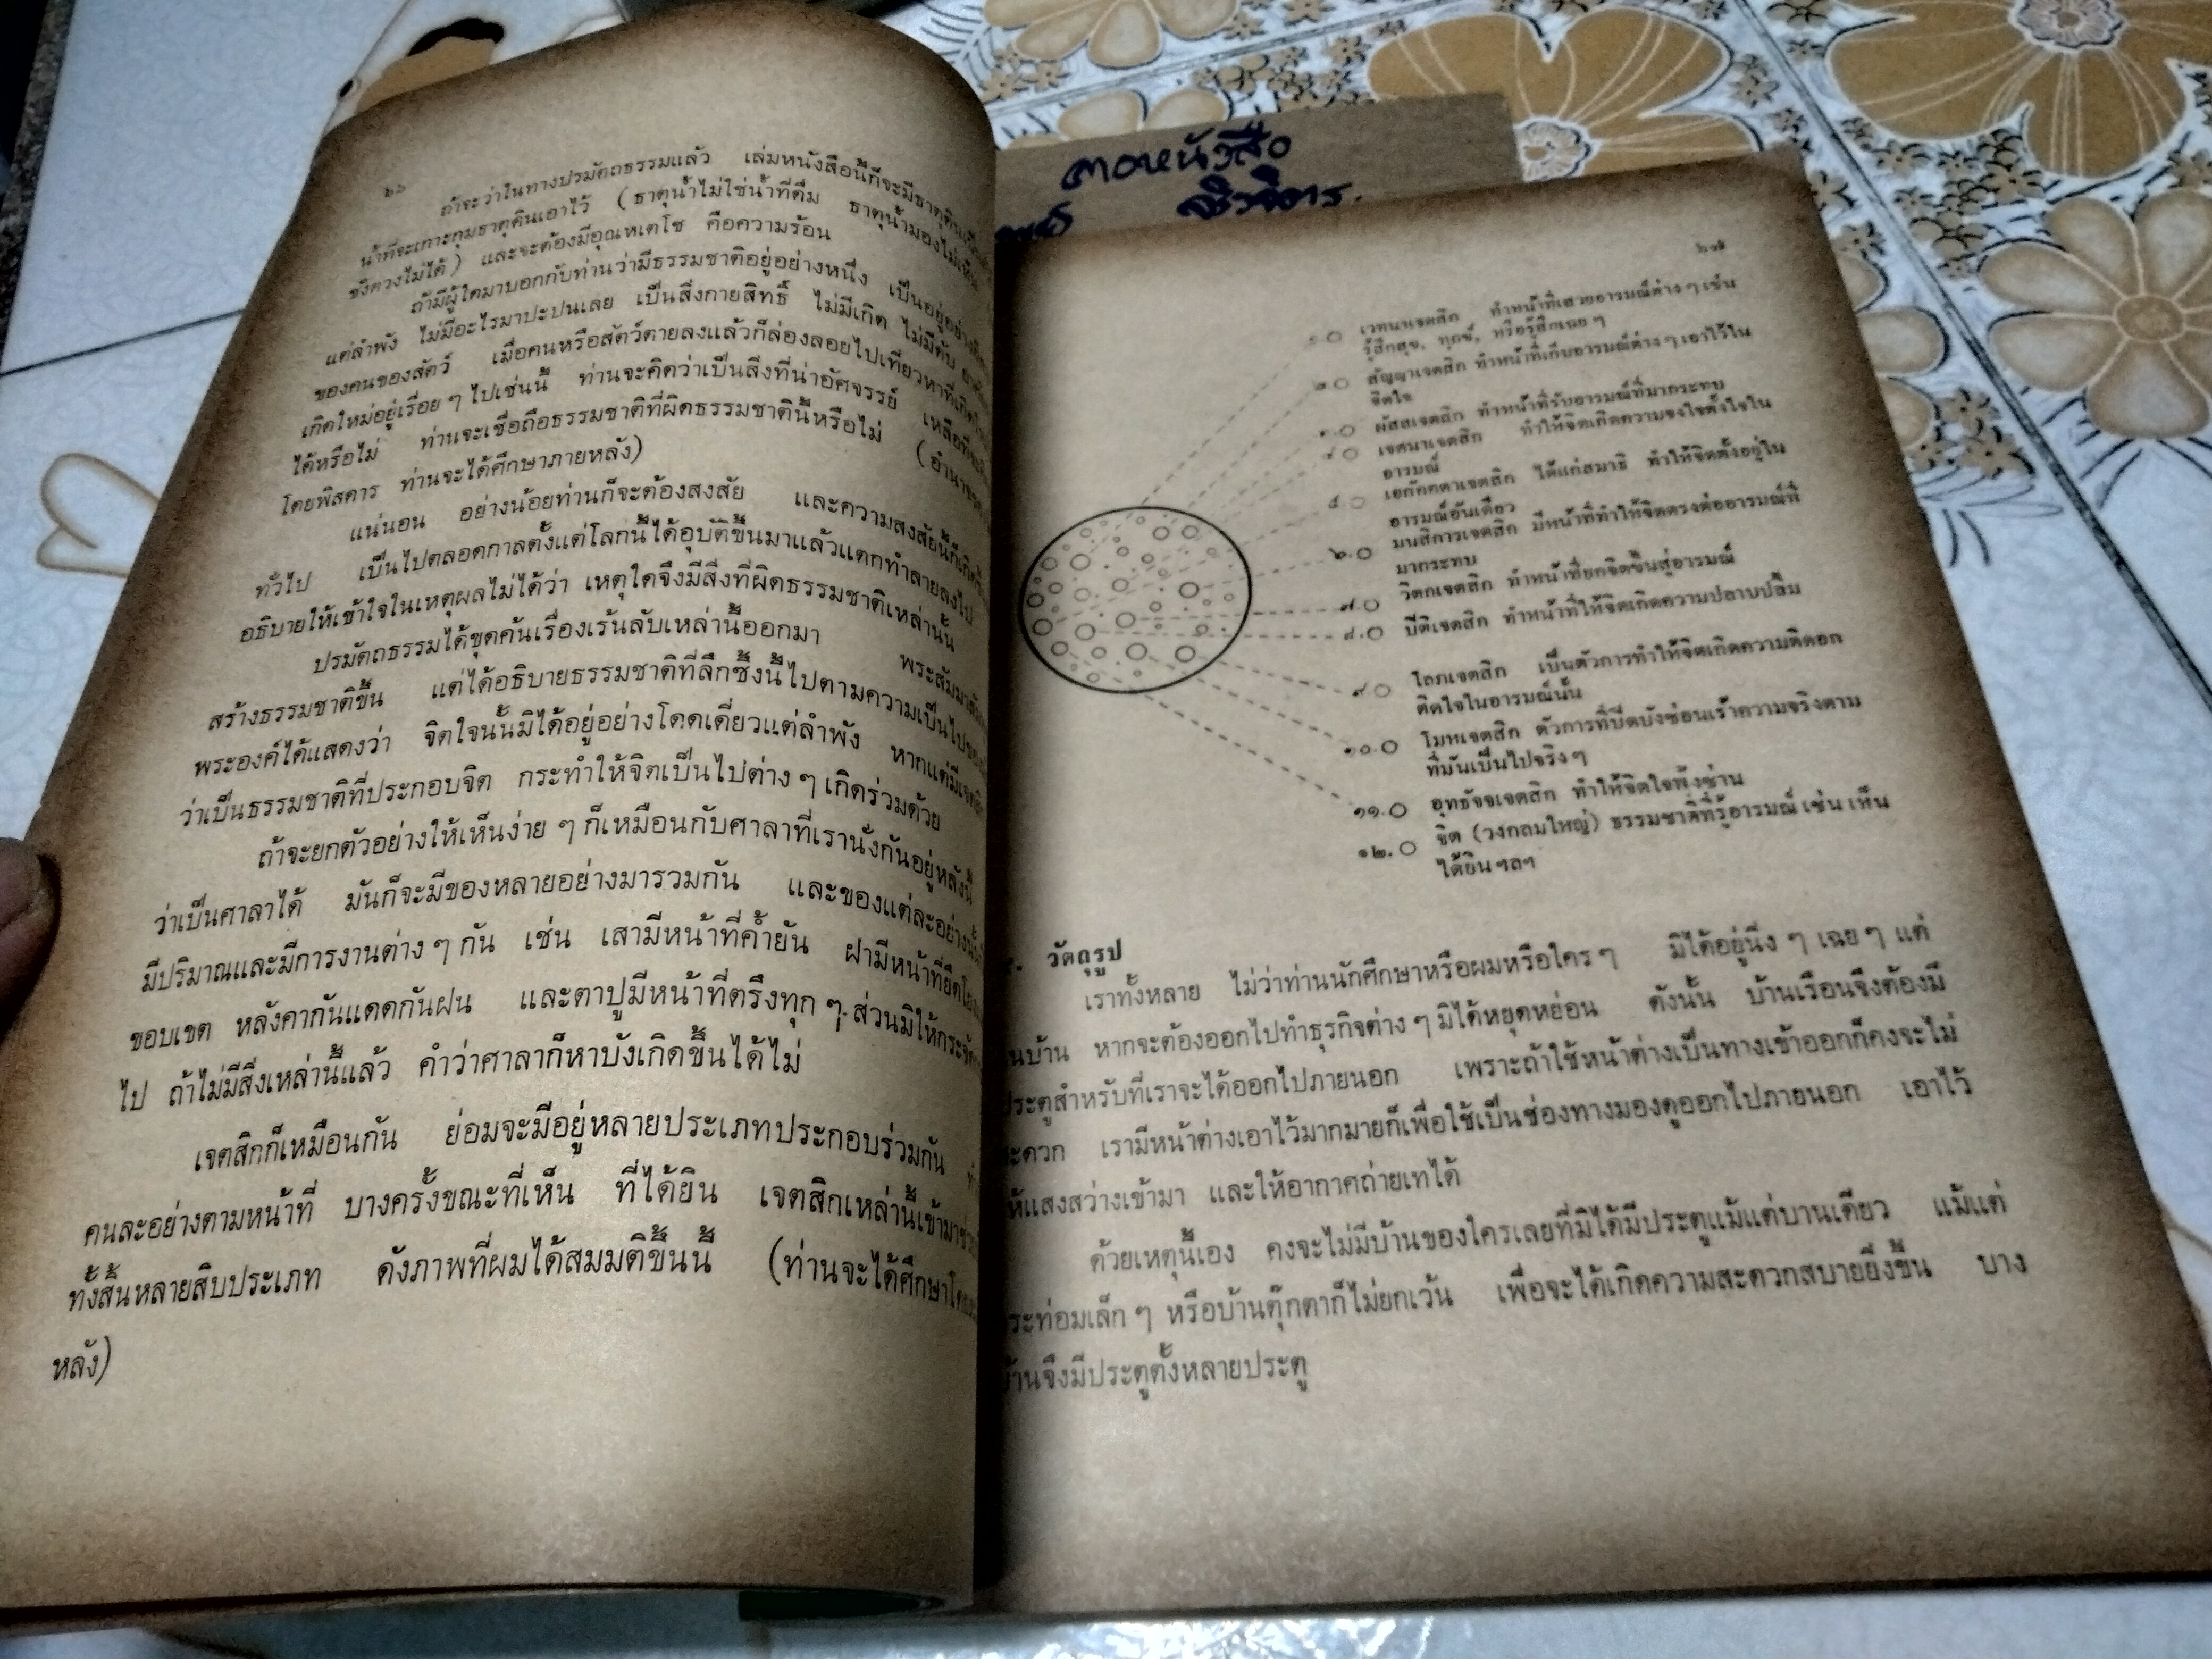 ๒๖
ถ้าจะว่าในทางปรมัตถธรรมแล้ว เล่มหนังสือนี้ก็จะมีธาตุดิน
น้ำที่จะเกาะกุมธาตุดินเอาไว้ (ธาตุน้ำไม่ใช่น้ำที่ดื่ม ธาตุน้ำมองไม่เห็น
ชั่งตวงไม่ได้) และจะต้องมีอุณหเตโช คือความร้อน
ถ้ามีผู้ใดมาบอกกับท่านว่ามีธรรมชาติอยู่อย่างหนึ่ง เป็นอยู่อย่าง
แต่ลำพัง ไม่มีอะไรมาปะปนเลย เป็นสิ่งกายสิทธิ์ ไม่มีเกิด ไม่มีดับ
ของคนของสัตว์ เมื่อคนหรือสัตว์ตายลงแล้วก็ล่องลอยไปเที่ยวหาที่เกิด
เกิดใหม่อยู่เรื่อย ๆ ไปเช่นนี้ ท่านจะคิดว่าเป็นสิ่งที่น่าอัศจรรย์ เหลือที่จะ
ได้หรือไม่ ท่านจะเชื่อถือธรรมชาติที่ผิดธรรมชาตินี้หรือไม่ (อำนาจ
โดยพิสดาร ท่านจะได้ศึกษาภายหลัง)
แน่นอน อย่างน้อยท่านก็จะต้องสงสัย และความสงสัยนี้ก็เกิดขึ้น
ทั่วไป เป็นไปตลอดกาลตั้งแต่โลกนี้ได้อุบัติขึ้นมาแล้วแตกทำลายลงไป
อธิบายให้เข้าใจในเหตุผลไม่ได้ว่า เหตุใดจึงมีสิ่งที่ผิดธรรมชาติเหล่านั้น
ปรมัตถธรรมได้ขุดค้นเรื่องเร้นลับเหล่านี้ออกมา พระสัมมา
สร้างธรรมชาติขึ้น แต่ได้อธิบายธรรมชาติที่ลึกซึ้งนี้ไปตามความเป็นไป
พระองค์ได้แสดงว่า จิตใจนั้นมิได้อยู่อย่างโดดเดี่ยวแต่ลำพัง หากแต่มีเจตสิก
ว่าเป็นธรรมชาติที่ประกอบจิต กระทำให้จิตเป็นไปต่าง ๆ เกิดร่วมด้วย
ถ้าจะยกตัวอย่างให้เห็นง่าย ๆ ก็เหมือนกับศาลาที่เรานั่งกันอยู่หลังนี้
ว่าเป็นศาลาได้ มันก็จะมีของหลายอย่างมารวมกัน และของแต่ละอย่างนั้น
มีปริมาณและมีการงานต่าง ๆ กัน เช่น เสามีหน้าที่ค้ำยัน ฝามีหน้าที่ยึด
ขอบเขต หลังคากันแดดกันฝน และตาปูมีหน้าที่ตรึงทุก ๆ ส่วนมิให้กระจัด
ไป ถ้าไม่มีสิ่งเหล่านี้แล้ว คำว่าศาลาก็หาบังเกิดขึ้นได้ไม่
เจตสิกก็เหมือนกัน ย่อมจะมีอยู่หลายประเภทประกอบร่วมกัน
คนละอย่างตามหน้าที่ บางครั้งขณะที่เห็น ที่ได้ยิน เจตสิกเหล่านี้เข้ามา
ทั้งสิ้นหลายสิบประเภท ดังภาพที่ผมได้สมมติขึ้นนี้ (ท่านจะได้ศึกษา
หลัง)
ศิวจิตร.
๒๗
๑ เวทนาเจตสิก ทำหน้าที่เสวยอารมณ์ต่าง ๆ เช่น
รู้สึกสุข, ทุกข์, หรือรู้สึกเฉย ๆ
๒ สัญญาเจตสิก ทำหน้าที่เก็บอารมณ์ต่าง ๆ เอาไว้ใน
จิตใจ
๓. ผัสสเจตสิก ทำหน้าที่รับอารมณ์ที่มากระทบ
๔ เจตนาเจตสิก ทำให้จิตเกิดความจงใจตั้งใจใน
อารมณ์
๕ เอกัคคตาเจตสิก ได้แก่สมาธิ ทำให้จิตตั้งอยู่ใน
อารมณ์อันเดียว
๖. มนสิการเจตสิก มีหน้าที่ทำให้จิตตรงต่ออารมณ์ที่
มากระทบ
๗. วิตกเจตสิก ทำหน้าที่ยกจิตขึ้นสู่อารมณ์
๘. ปีติเจตสิก ทำหน้าที่ให้จิตเกิดความปลาบปลื้ม
๙ โลภเจตสิก เป็นตัวการทำให้จิตเกิดความติดอก
ติดใจในอารมณ์นั้น
๑๐. โมหเจตสิก ตัวการที่ปิดบังซ่อนเร้าความจริงตาม
ที่มันเป็นไปจริง ๆ
๑๑. อุทธัจจเจตสิก ทำให้จิตใจฟุ้งซ่าน
๑๒. จิต (วงกลมใหญ่) ธรรมชาติที่รู้อารมณ์ เช่น เห็น
ได้ยิน ฯลฯ
วัตถุรูป
เราทั้งหลาย ไม่ว่าท่านนักศึกษาหรือผมหรือใคร ๆ มิได้อยู่นิ่ง ๆ เฉย ๆ แต่
บ้าน หากจะต้องออกไปทำธุรกิจต่าง ๆ มิได้หยุดหย่อน ดังนั้น บ้านเรือนจึงต้องมี
ประตูสำหรับที่เราจะได้ออกไปภายนอก เพราะถ้าใช้หน้าต่างเป็นทางเข้าออกก็คงจะไม่
สะดวก เรามีหน้าต่างเอาไว้มากมายก็เพื่อใช้เป็นช่องทางมองดูออกไปภายนอก เอาไว้
ให้แสงสว่างเข้ามา และให้อากาศถ่ายเทได้
ด้วยเหตุนี้เอง คงจะไม่มีบ้านของใครเลยที่มิได้มีประตูแม้แต่บานเดียว แม้แต่
กระท่อมเล็ก ๆ หรือบ้านตุ๊กตาก็ไม่ยกเว้น เพื่อจะได้เกิดความสะดวกสบายยิ่งขึ้น บาง
บ้านจึงมีประตูตั้งหลายประตู